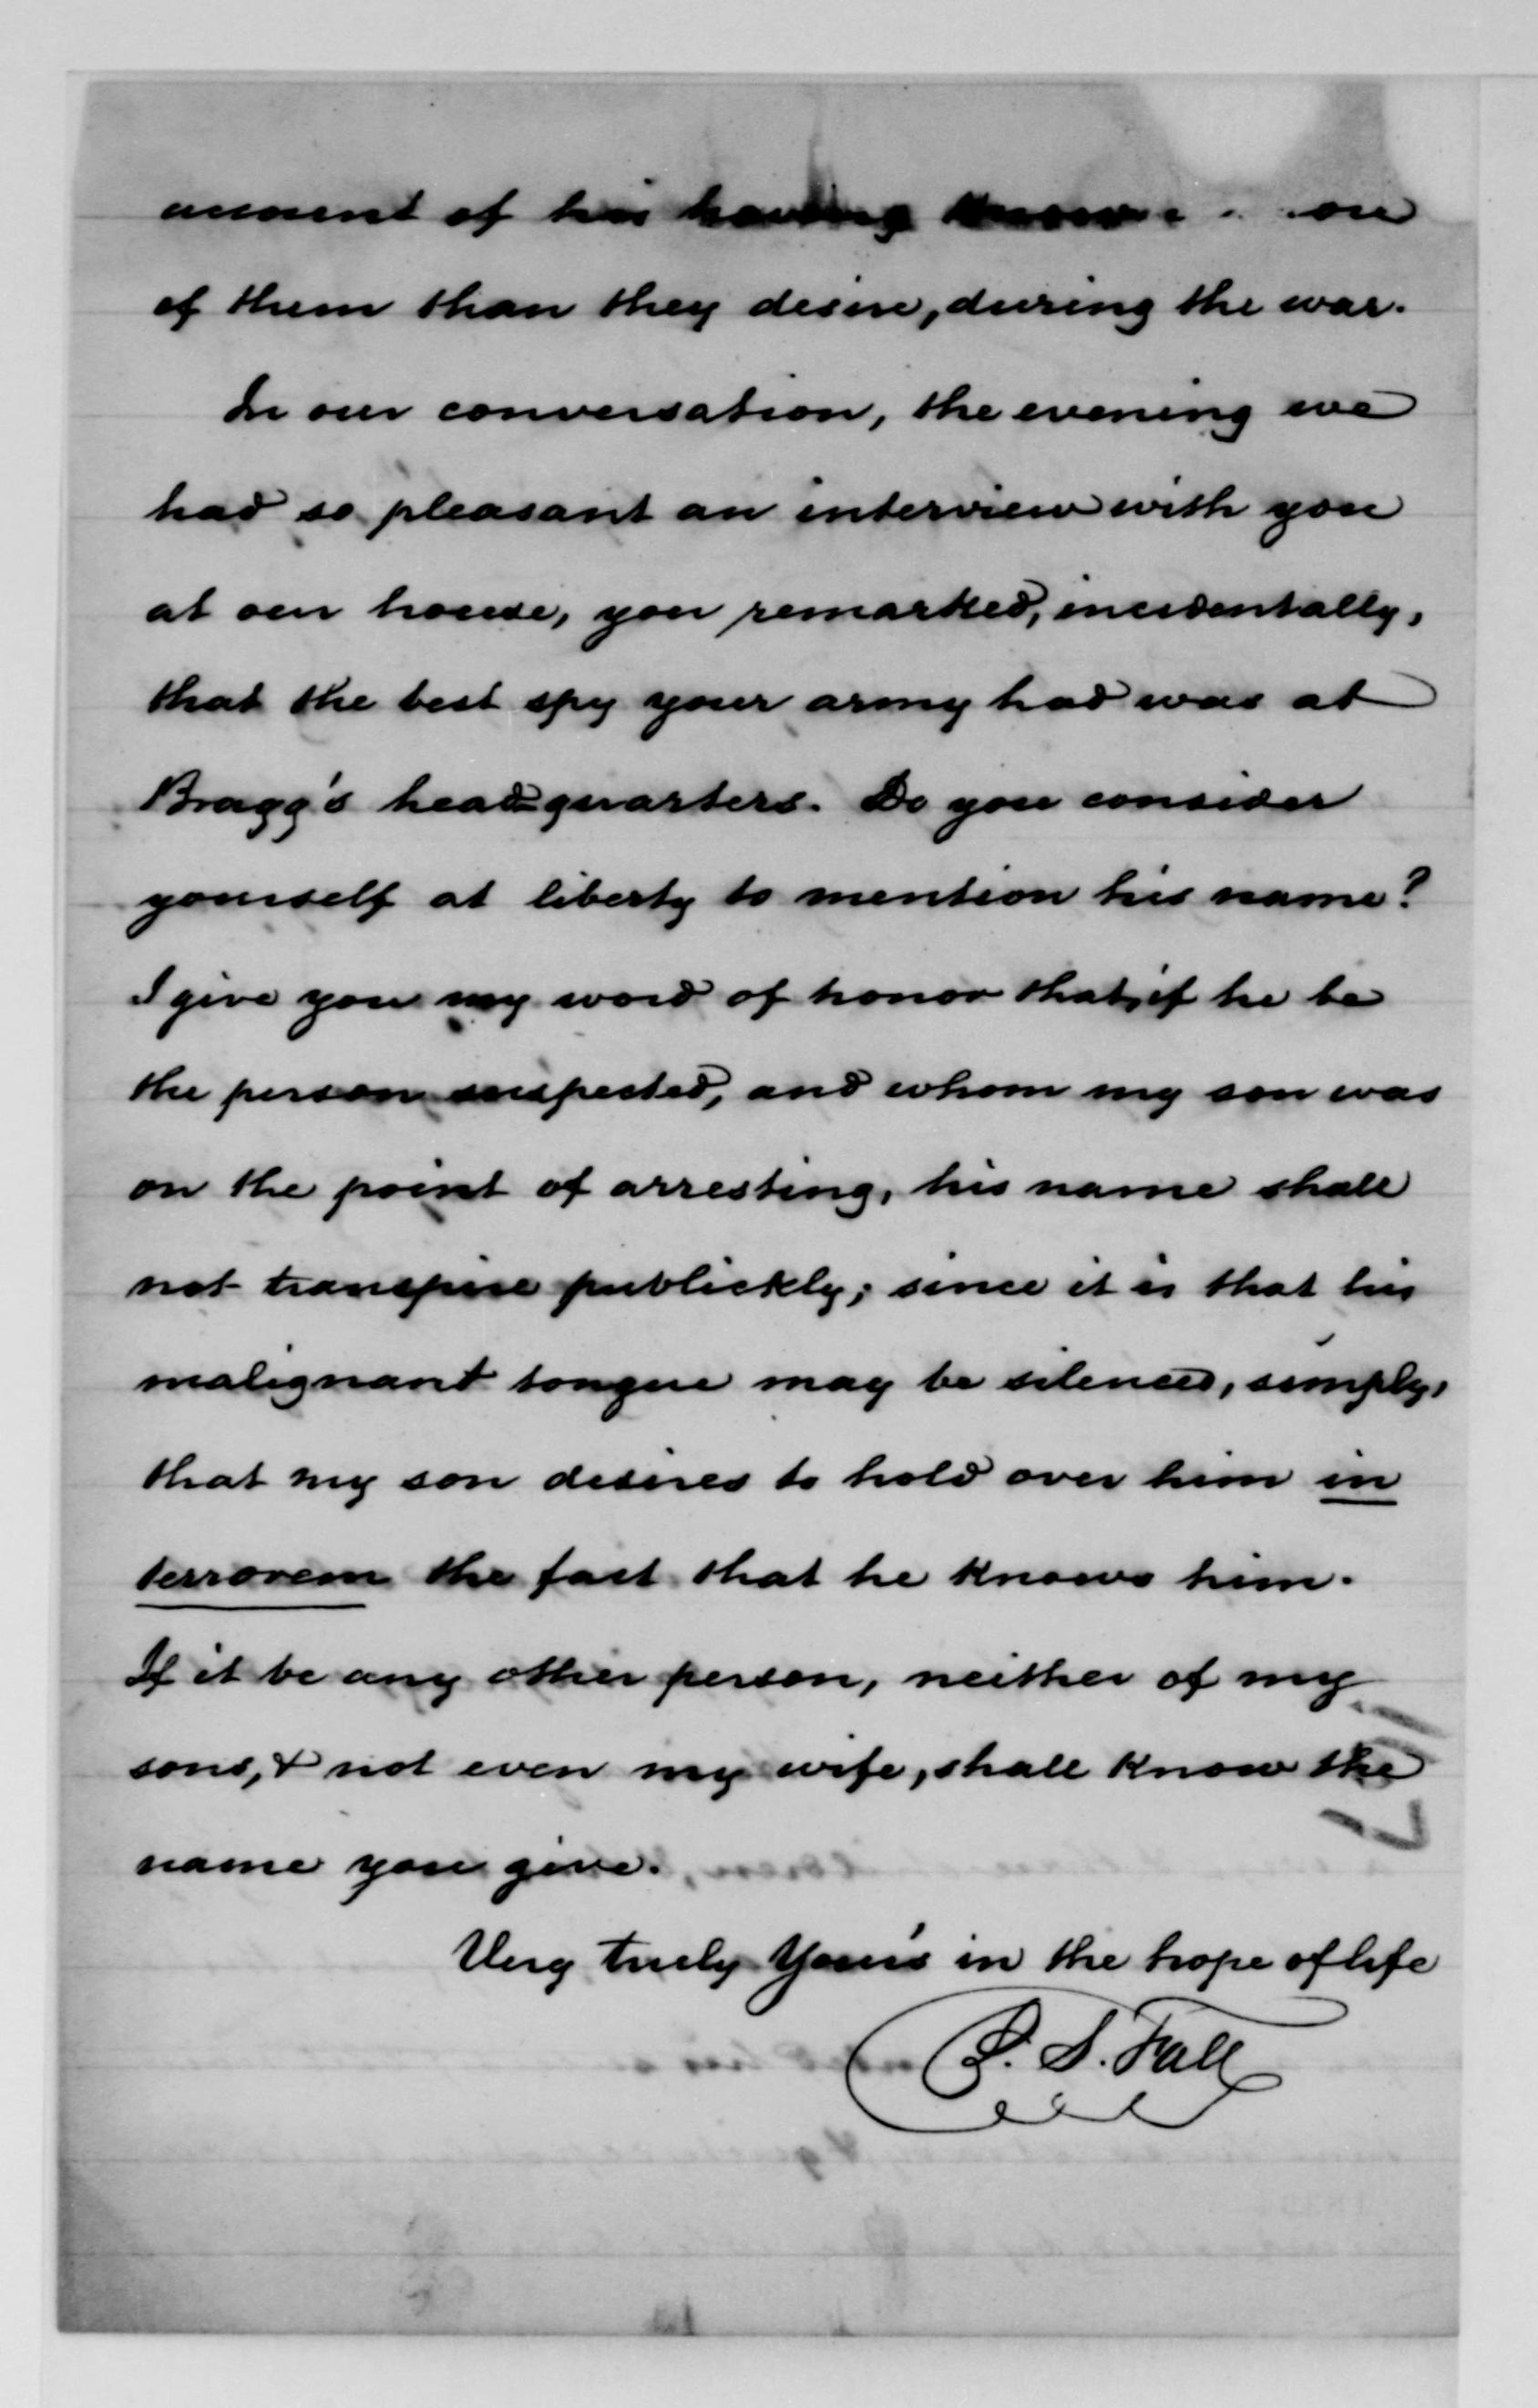 account of his having known on
of them than they desire, during the war.
In our conversation, the evening we
had so pleasant an interview with you
at our house, you remarked, incidentally,
that the best spy your army had was at
Bragg's headquarters. Do you consider
yourself at liberty to mention his name?
I give you my word of honor that, if he be
the person suspected, and whom my son was
on the point of arresting, his name shall
not transpire publickly; since it is that his
malignant tongue may be silenced, simply,
that my son desires to hold over him in
terrorem the fact that he knows him.
If it be any other person, neither of my
sons, & not even my wife, shall know the
name you give.
Very truly Your's in the hope of life
P. S. Fall